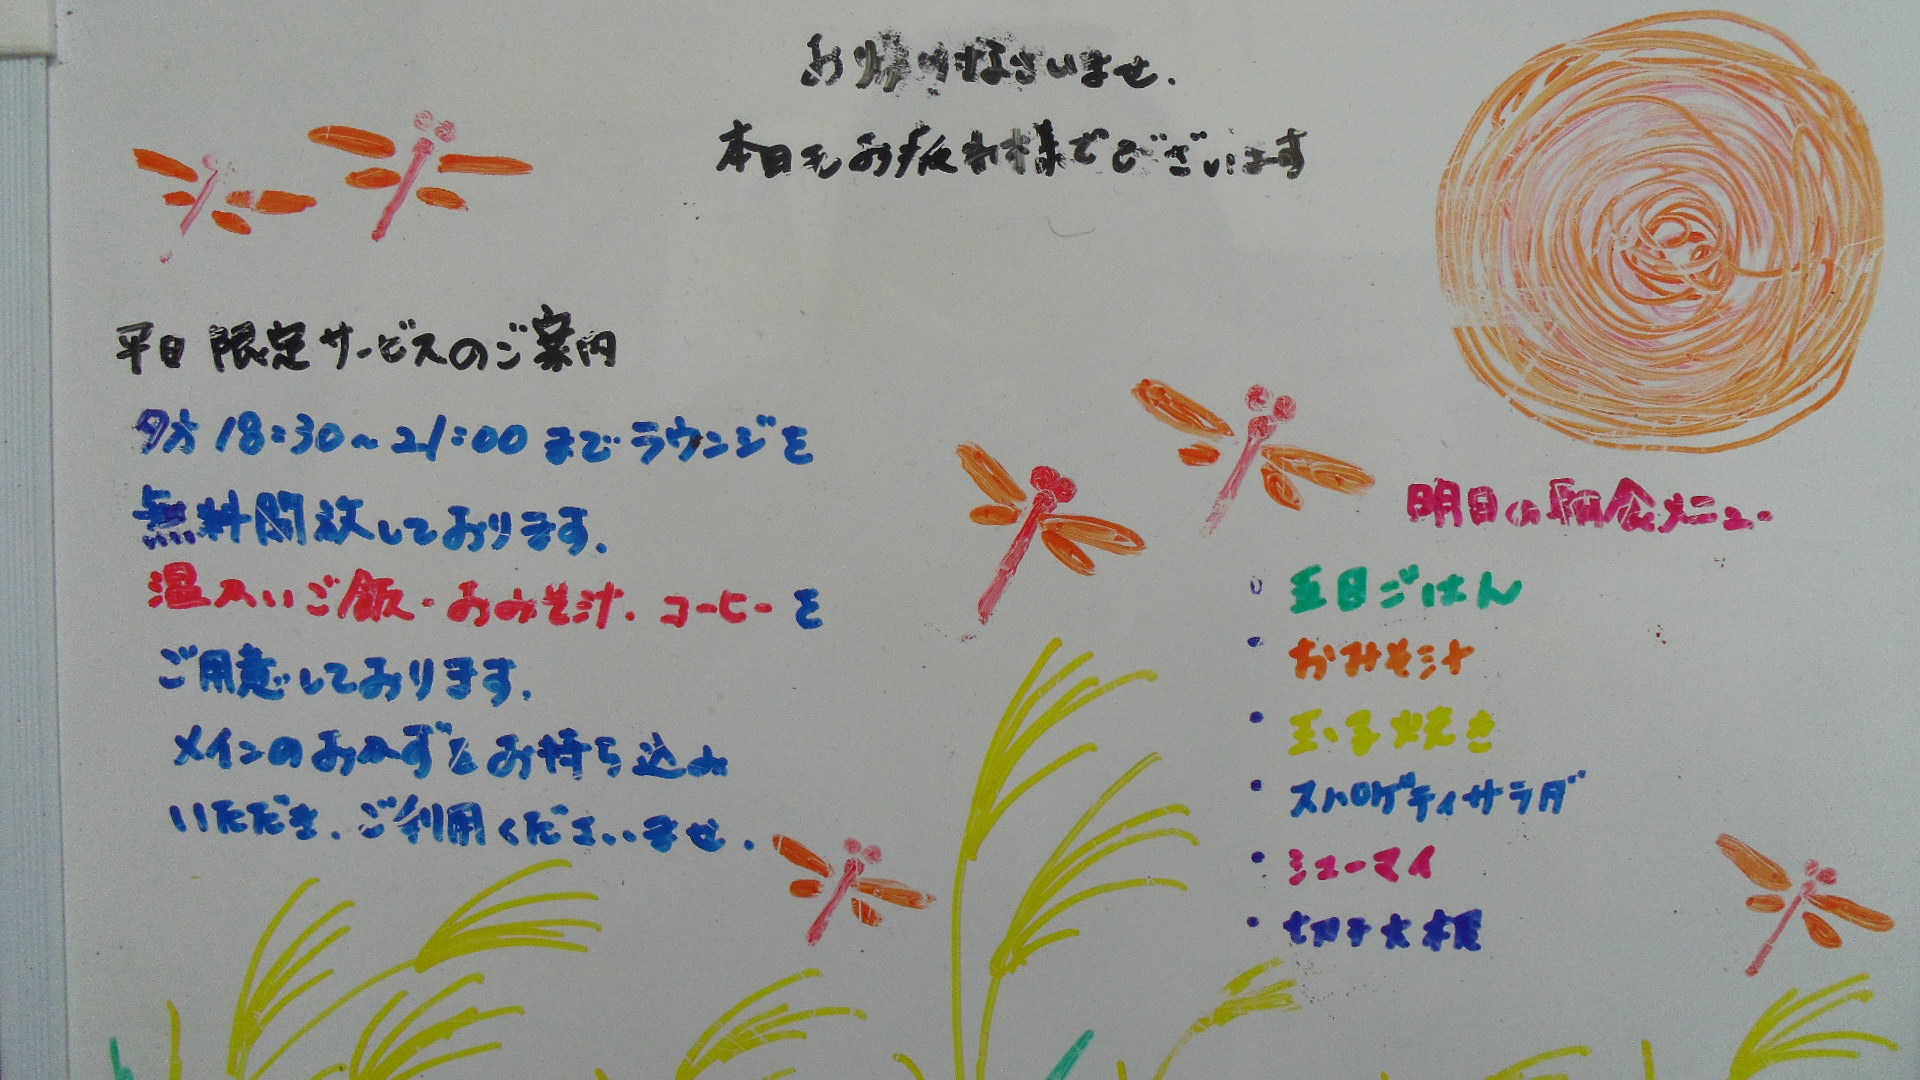 お帰りなさいませ.
本日もお疲れ様でございます
平日限定サービスのご案内
夕方18:30~21:00までラウンジを
無料開放しております.
温かいご飯・おみそ汁.コーヒーを
ご用意しております.
メインのおかずをお持ち込み
いただき.ご利用くださいませ.
明日の朝食メニュー
・五目ごはん
・おみそ汁
・玉子焼き
・スパゲティサラダ
・シューマイ
・切干大根